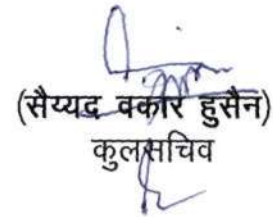 (सैय्यद वकार हुसैन)
कुलसचिव